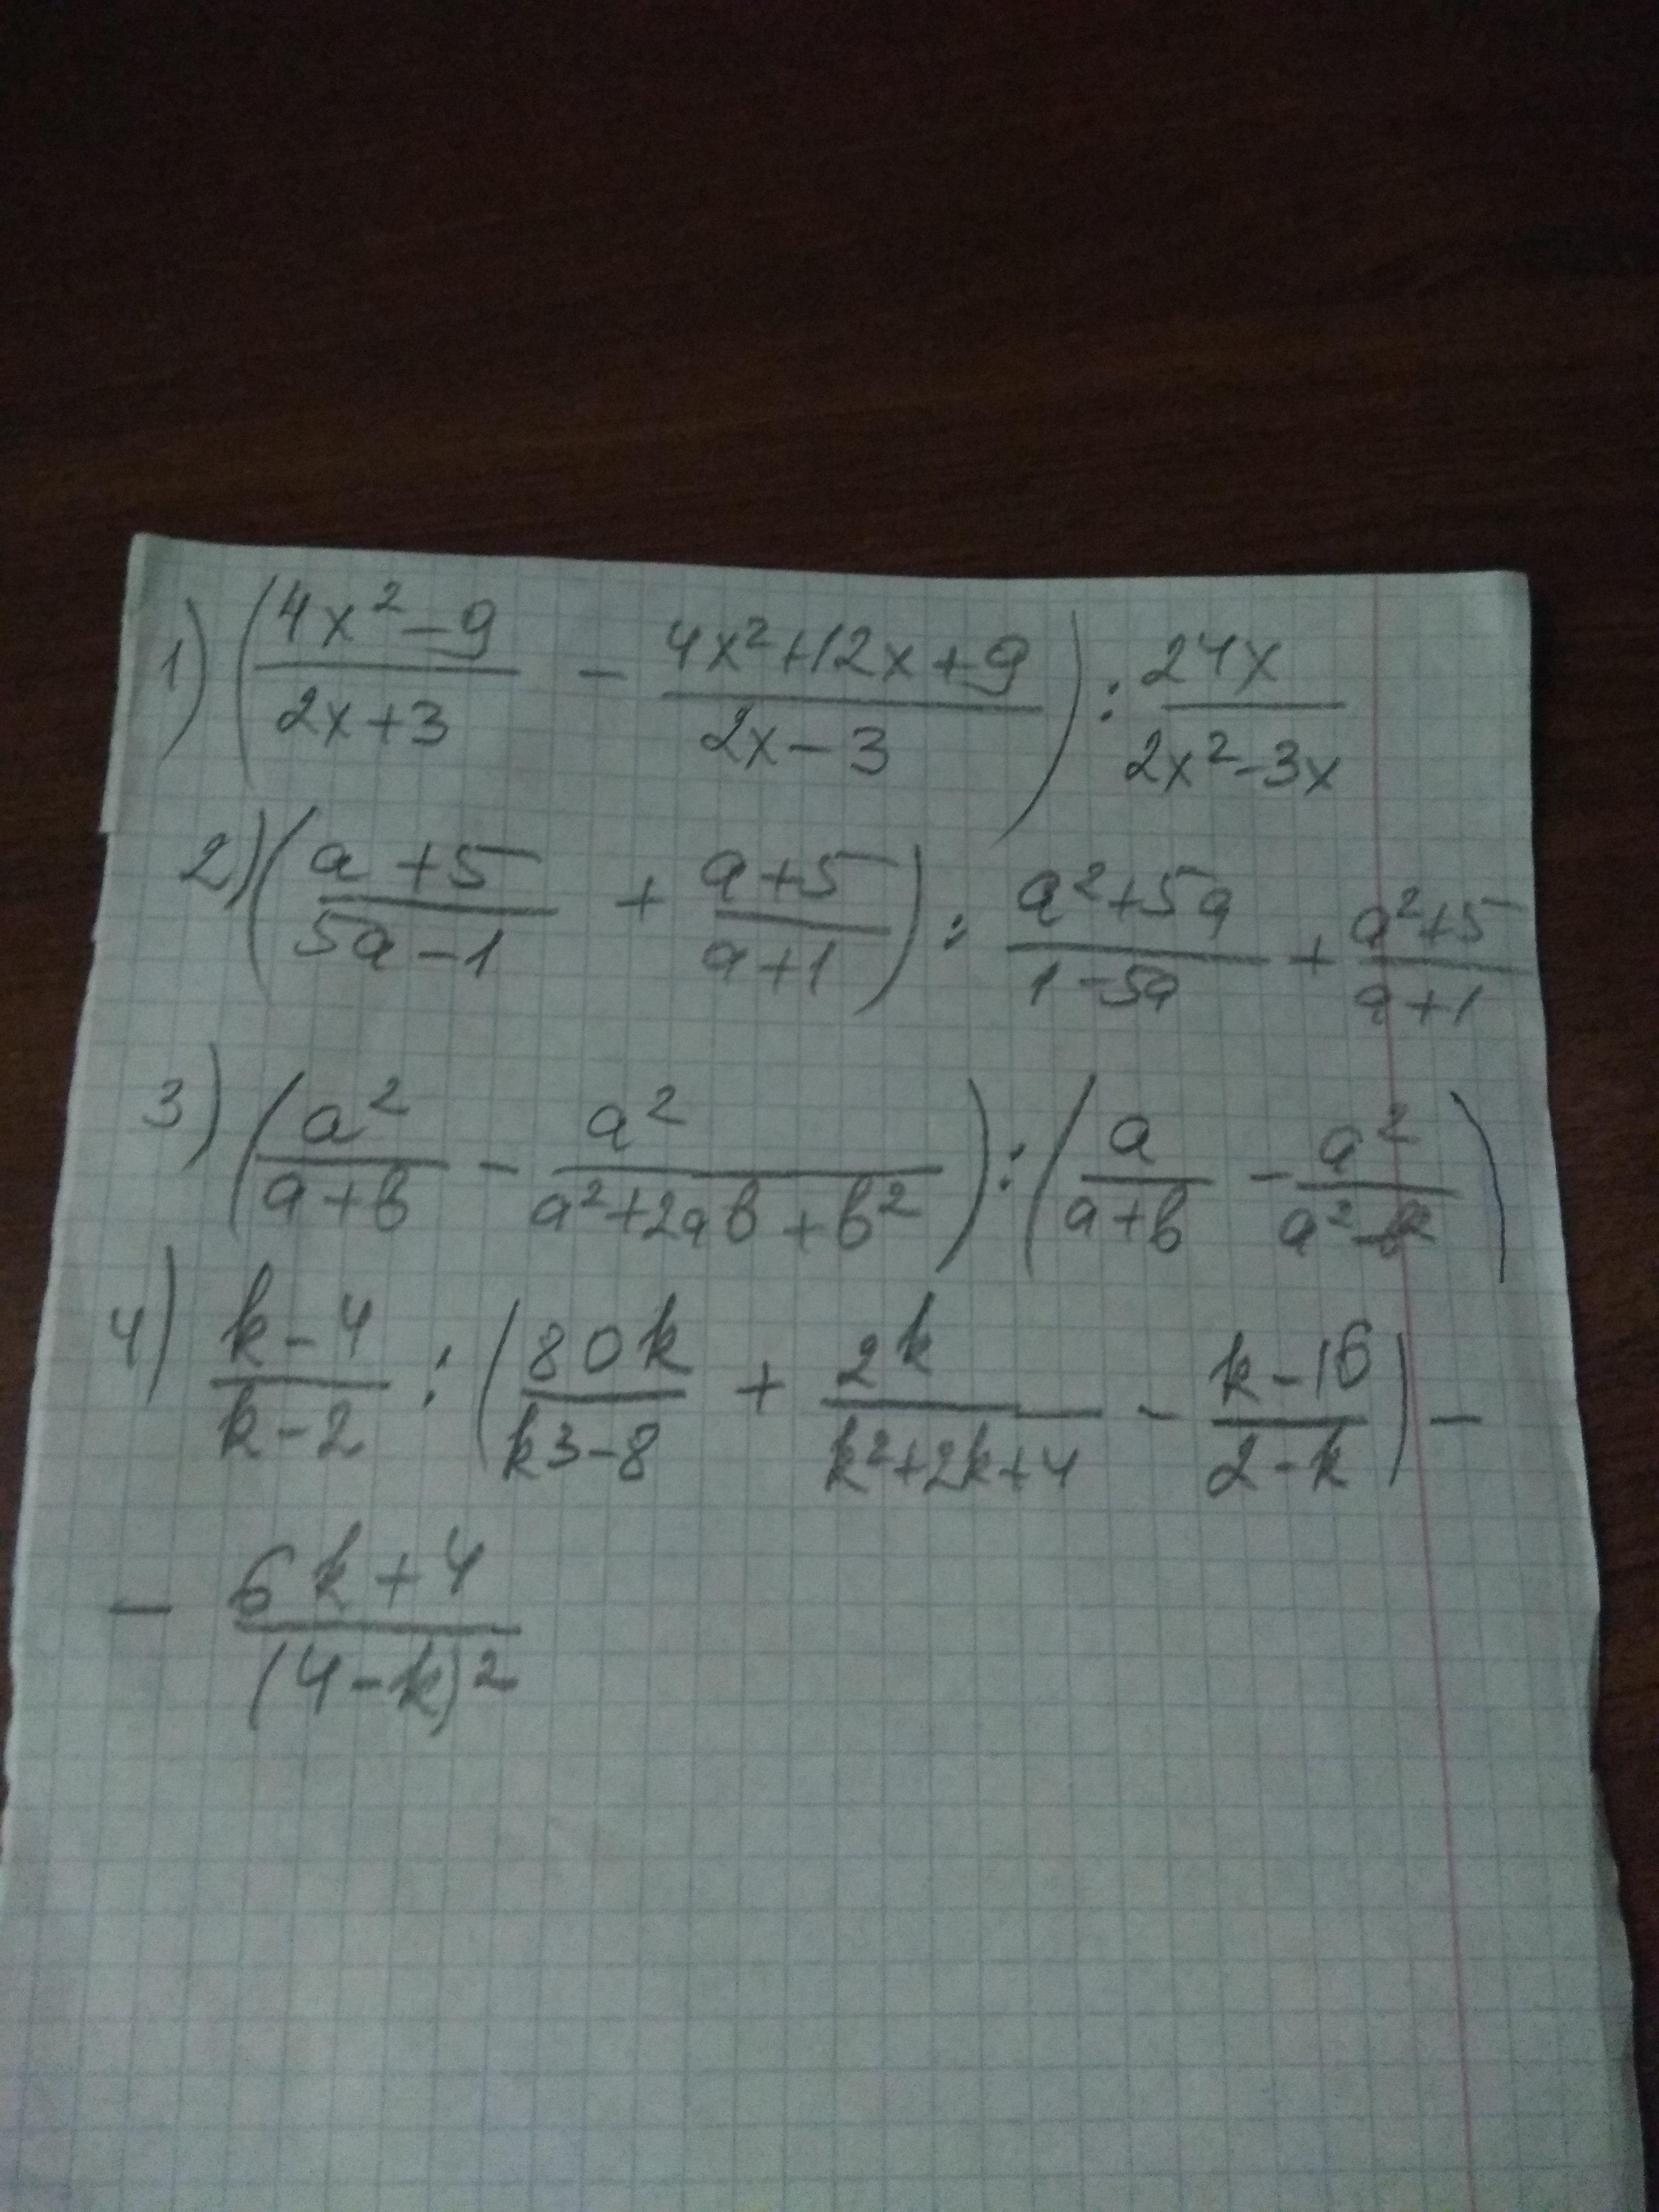 1) (4x²-9 / 2x+3 - 4x²+12x+9 / 2x-3) : 24x / 2x²-3x
2) (a+5 / 5a-1 + a+5 / a+1) : a²+5a / 1-5a + a²+5 / a+1
3) (a² / a+b - a² / a²+2ab+b²) : (a / a+b - a² / a²-b²)
4) k-4 / k-2 : (80k / k3-8 + 2k / k²+2k+4 - k-16 / 2-k) -
- 6k+4 / (4-k)²